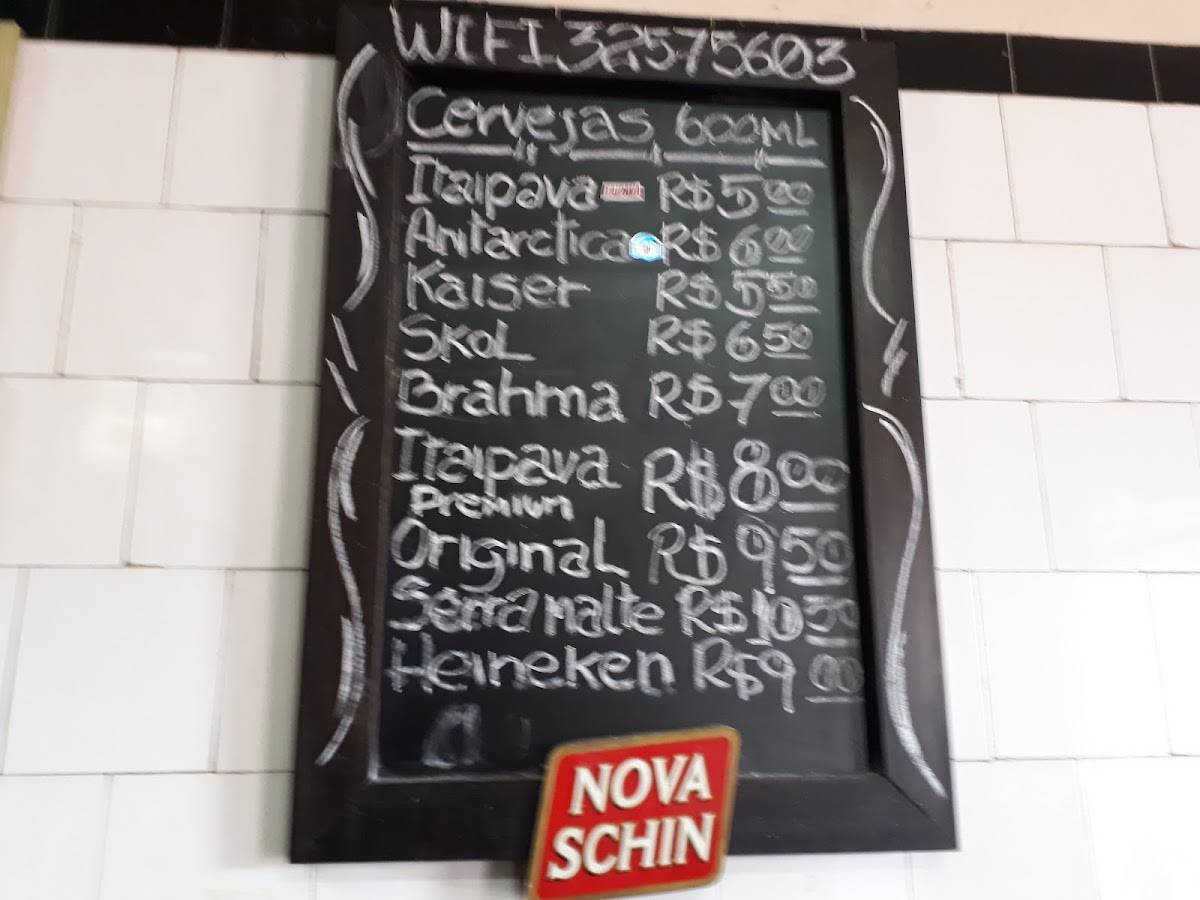 WIFI 32575603
Cervejas 600ML
Itaipava R$5 00
Antarctica R$ 6 00
Kaiser R$ 5 50
SKOL R$ 6 50
Brahma R$ 7 00
Itaipava R$ 8 00
Premium
OriginaL R$ 9 50
Serramalte R$ 10 50
Heineken R$ 9 00
NOVA
SCHIN